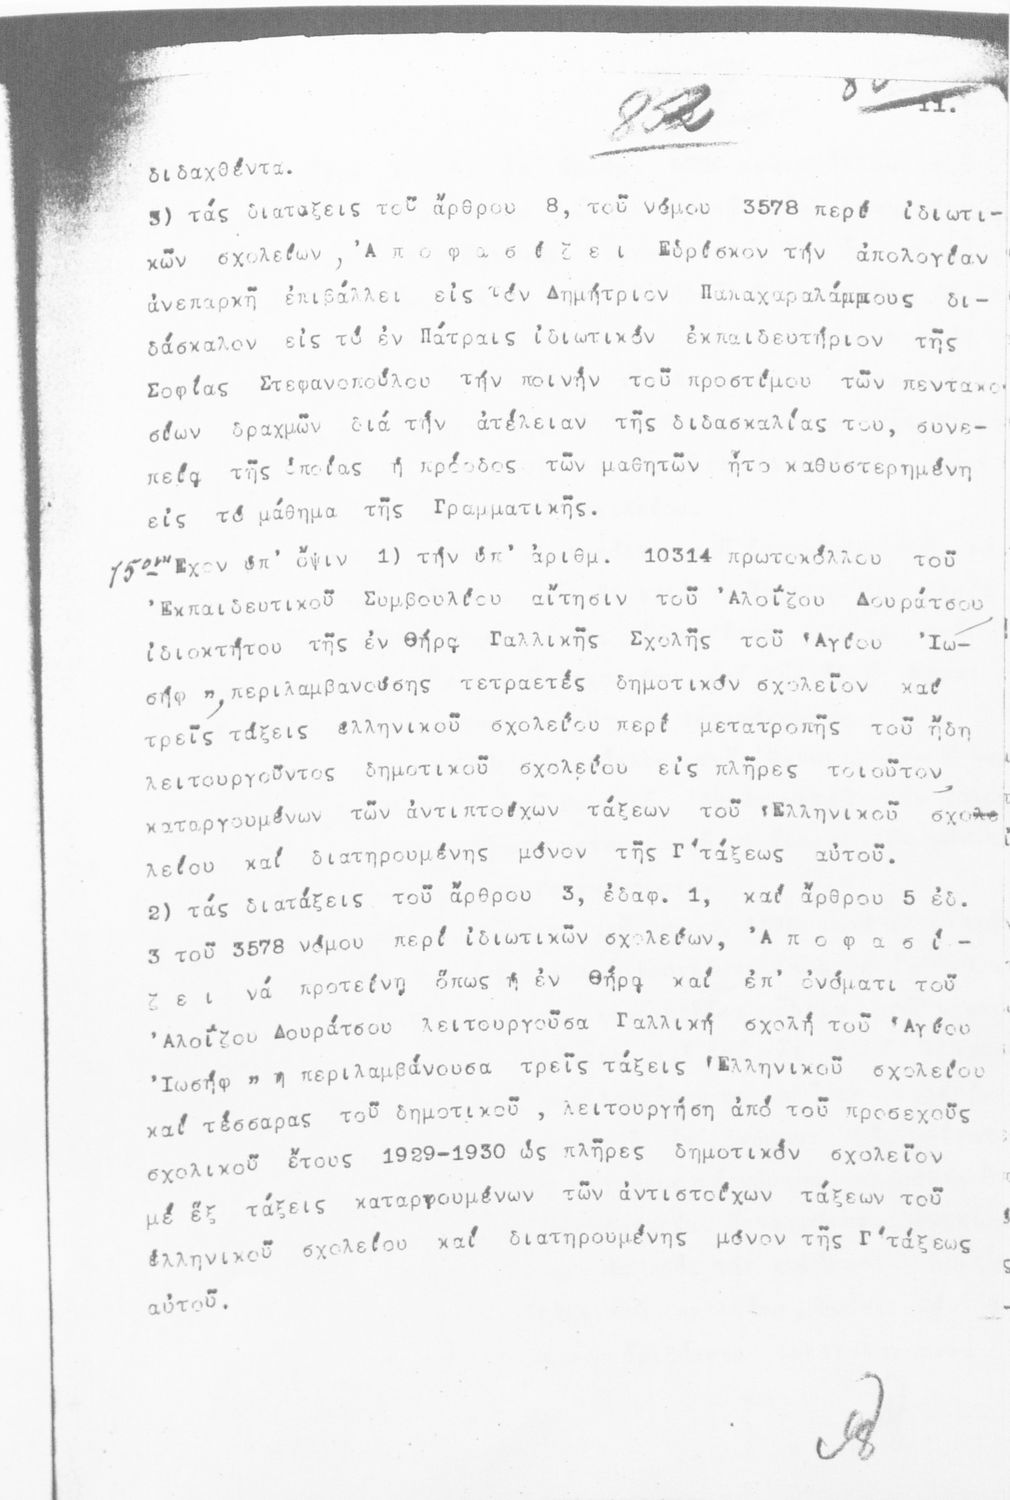 852
11.
διδαχθέντα.
3) τάς διατάξεις τοῦ ἄρθρου 8, τοῦ νόμου 3578 περί ἰδιωτι-
κῶν σχολείων, Ἀ π ο φ α σ ί ζ ε ι Εὑρίσκον τήν ἀπολογίαν
ἀνεπαρκῆ ἐπιβάλλει εἰς τόν Δημήτριον Παπαχαραλάμπους δι-
δάσκαλον εἰς τό ἐν Πάτραις ἰδιωτικόν ἐκπαιδευτήριον τῆς
Σοφίας Στεφανοπούλου τήν ποινήν τοῦ προστίμου τῶν πεντακο
σίων δραχμῶν διά τήν ἀτέλειαν τῆς διδασκαλίας του, συνε-
πείᾳ τῆς ὁποίας ἡ πρόοδος τῶν μαθητῶν ἦτο καθυστερημένη
εἰς τό μάθημα τῆς Γραμματικῆς.
15ον Ἔχον ὑπ' ὄψιν 1) τήν ὑπ' ἀριθμ. 10314 πρωτοκόλλου τοῦ
Ἐκπαιδευτικοῦ Συμβουλίου αἴτησιν τοῦ Ἀλοΐζου Δουράτσου
ἰδιοκτήτου τῆς ἐν Θήρᾳ Γαλλικῆς Σχολῆς τοῦ Ἁγίου Ἰω-
σήφ ", περιλαμβανούσης τετραετές δημοτικόν σχολεῖον καί
τρεῖς τάξεις ἑλληνικοῦ σχολείου περί μετατροπῆς τοῦ ἤδη
λειτουργοῦντος δημοτικοῦ σχολείου εἰς πλῆρες τοιοῦτον,
καταργουμένων τῶν ἀντιπτοίχων τάξεων τοῦ Ἑλληνικοῦ σχο
λείου καί διατηρουμένης μόνον τῆς Γ΄τάξεως αὐτοῦ.
2) τάς διατάξεις τοῦ ἄρθρου 3, ἐδαφ. 1, καί ἄρθρου 5 ἐδ.
3 τοῦ 3578 νόμου περί ἰδιωτικῶν σχολείων, Ἀ π ο φ α σ ί -
ζ ε ι νά προτείνῃ ὅπως ἡ ἐν Θήρᾳ καί ἐπ' ὀνόματι τοῦ
Ἀλοΐζου Δουράτσου λειτουργοῦσα Γαλλική σχολή τοῦ Ἁγίου
Ἰωσήφ " ἡ περιλαμβάνουσα τρεῖς τάξεις Ἑλληνικοῦ σχολείου
καί τέσσαρας τοῦ δημοτικοῦ, λειτουργήση ἀπό τοῦ προσεχοῦς
σχολικοῦ ἔτους 1929-1930 ὡς πλῆρες δημοτικόν σχολεῖον
μέ ἕξ τάξεις καταργουμένων τῶν ἀντιστοίχων τάξεων τοῦ
ἑλληνικοῦ σχολείου καί διατηρουμένης μόνον τῆς Γ΄τάξεως
αὐτοῦ.